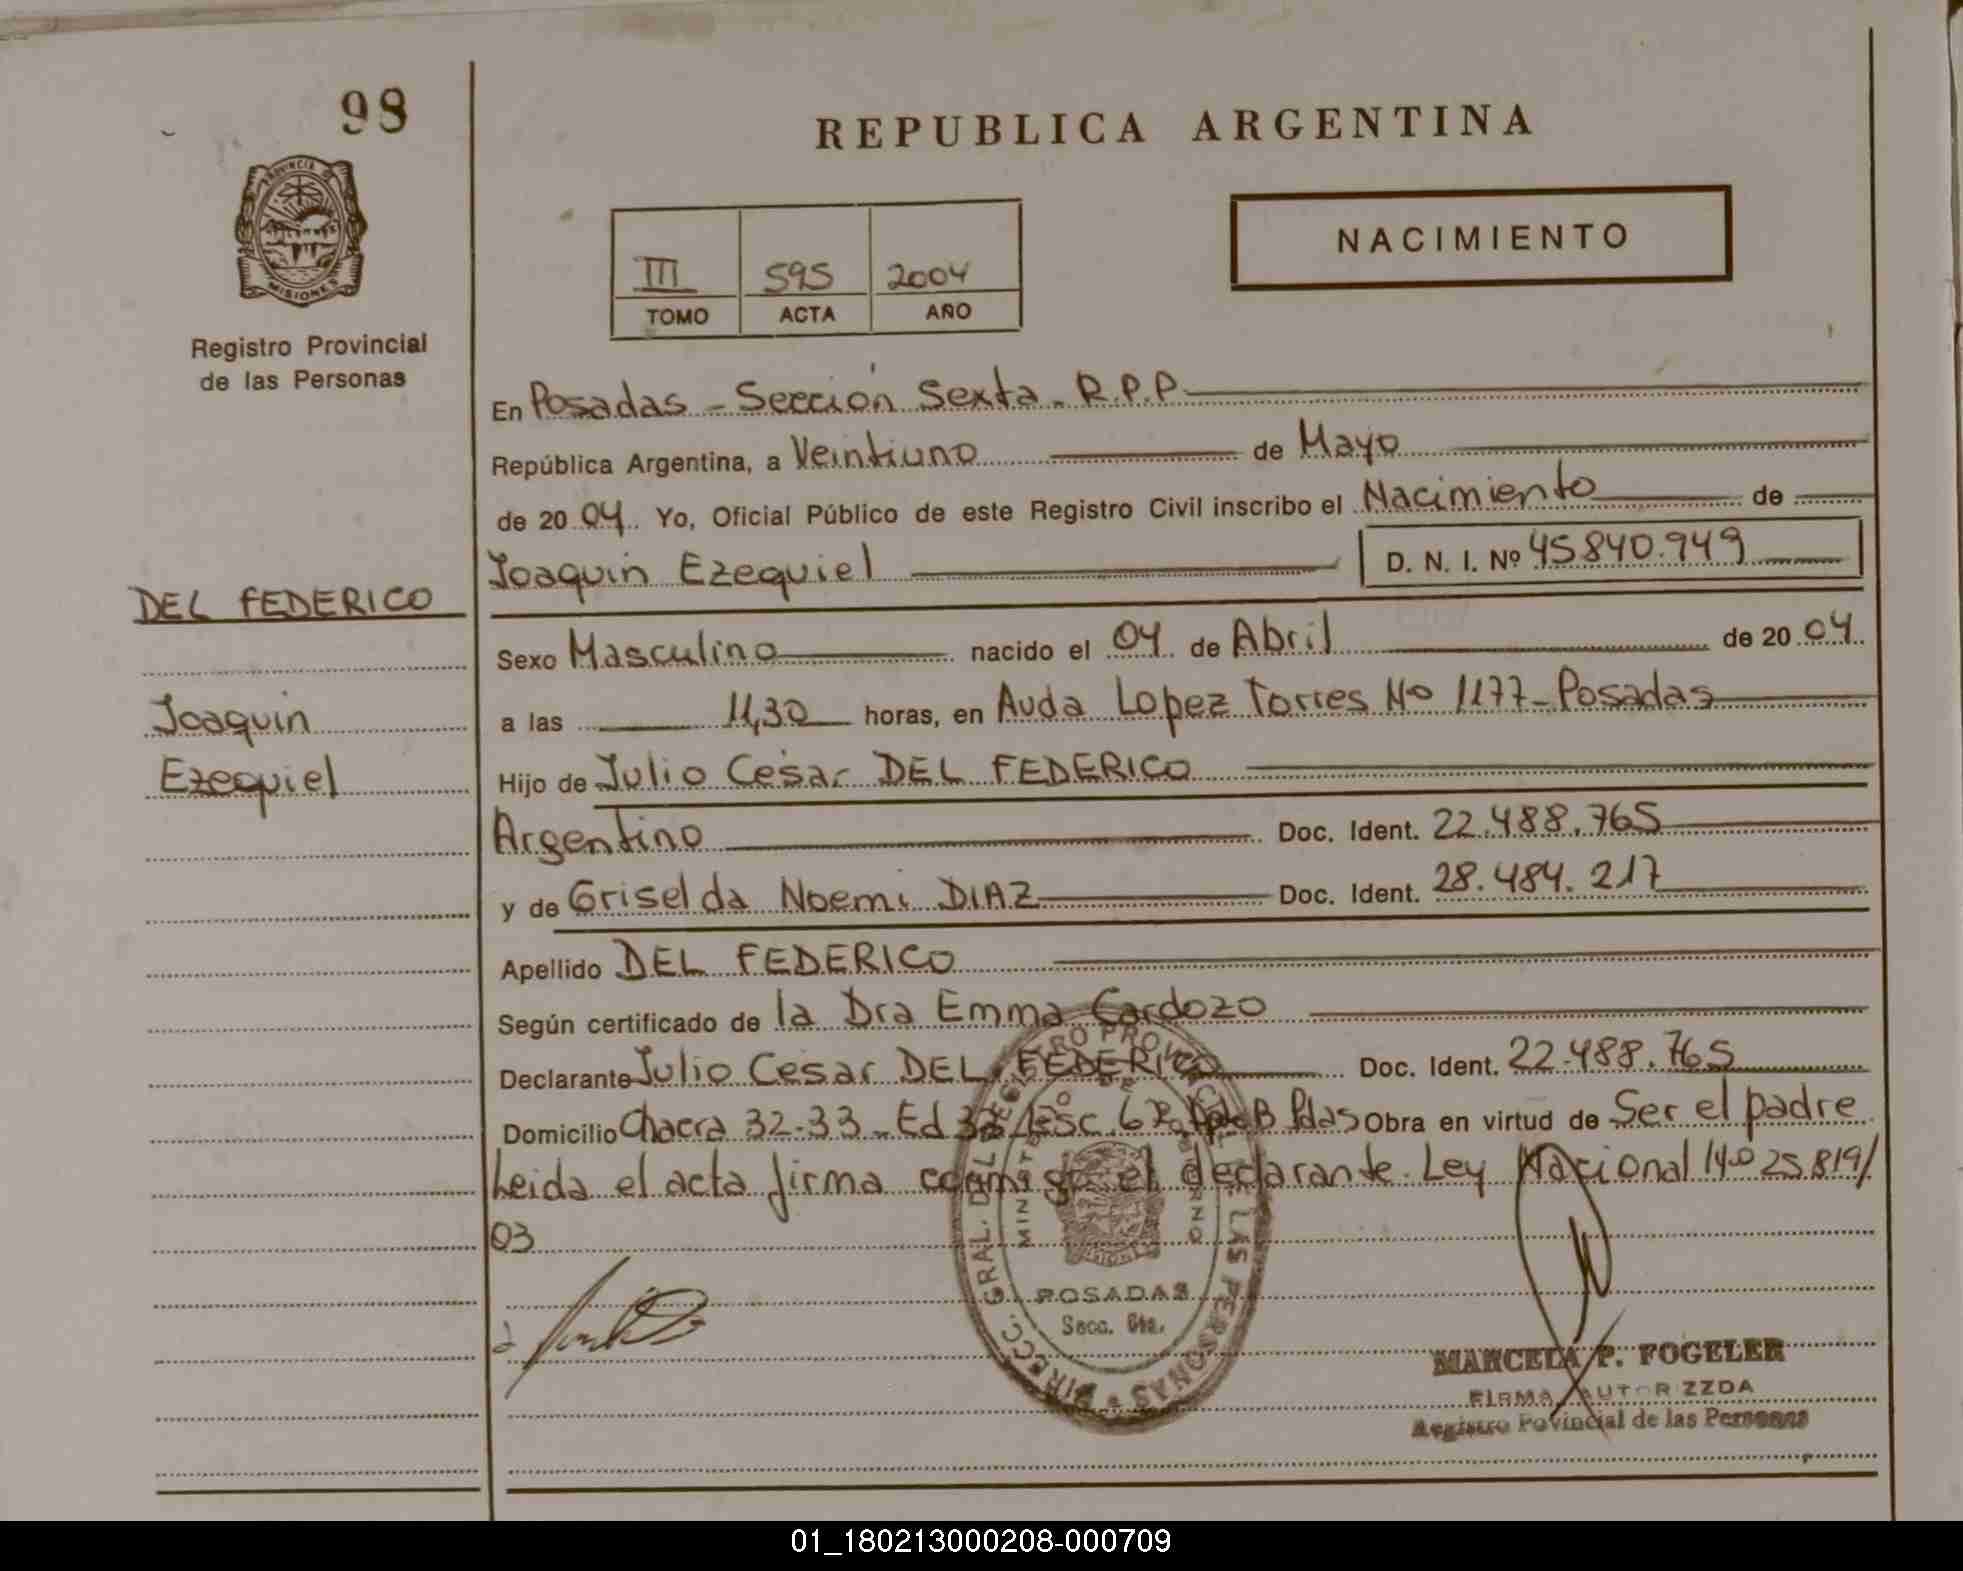 98
REPUBLICA ARGENTINA
PROVINCIA DE
MISIONES
Registro Provincial
de las Personas
III 595 2004
TOMO ACTA AÑO
NACIMIENTO
En Posadas - Sección Sexta - R.P.P
República Argentina, a Veintiuno de Mayo
de 2004. Yo, Oficial Público de este Registro Civil inscribo el Nacimiento de
Joaquin Ezequiel D. N. I. Nº 45840.949
DEL FEDERICO
Sexo Masculino nacido el 04 de Abril de 2004
Joaquin
a las 11,30 horas, en Avda Lopez Torres Nº 1177 - Posadas
Ezequiel
Hijo de Julio Cesar DEL FEDERICO
Argentino Doc. Ident. 22.488.765
y de Griselda Noemi DIAZ Doc. Ident. 28.484.217
Apellido DEL FEDERICO
Según certificado de la Dra Emma Cardozo
Declarante Julio Cesar DEL FEDERICO Doc. Ident. 22.488.765
Domicilio Chacra 32-33 - Ed Esc. 6 B Pdas Obra en virtud de Ser el padre
Leida el acta firma conmigo el declarante. Ley Nacional Nº 25.819/
03
DIRECC. GRAL. DEL REGISTRO PROVINCIAL DE LAS PERSONAS
POSADAS
Secc. 6ta.
MARCELA P. FOGELER
FIRMA AUTORIZZDA
Registro Povincial de las Personas
01_180213000208-000709